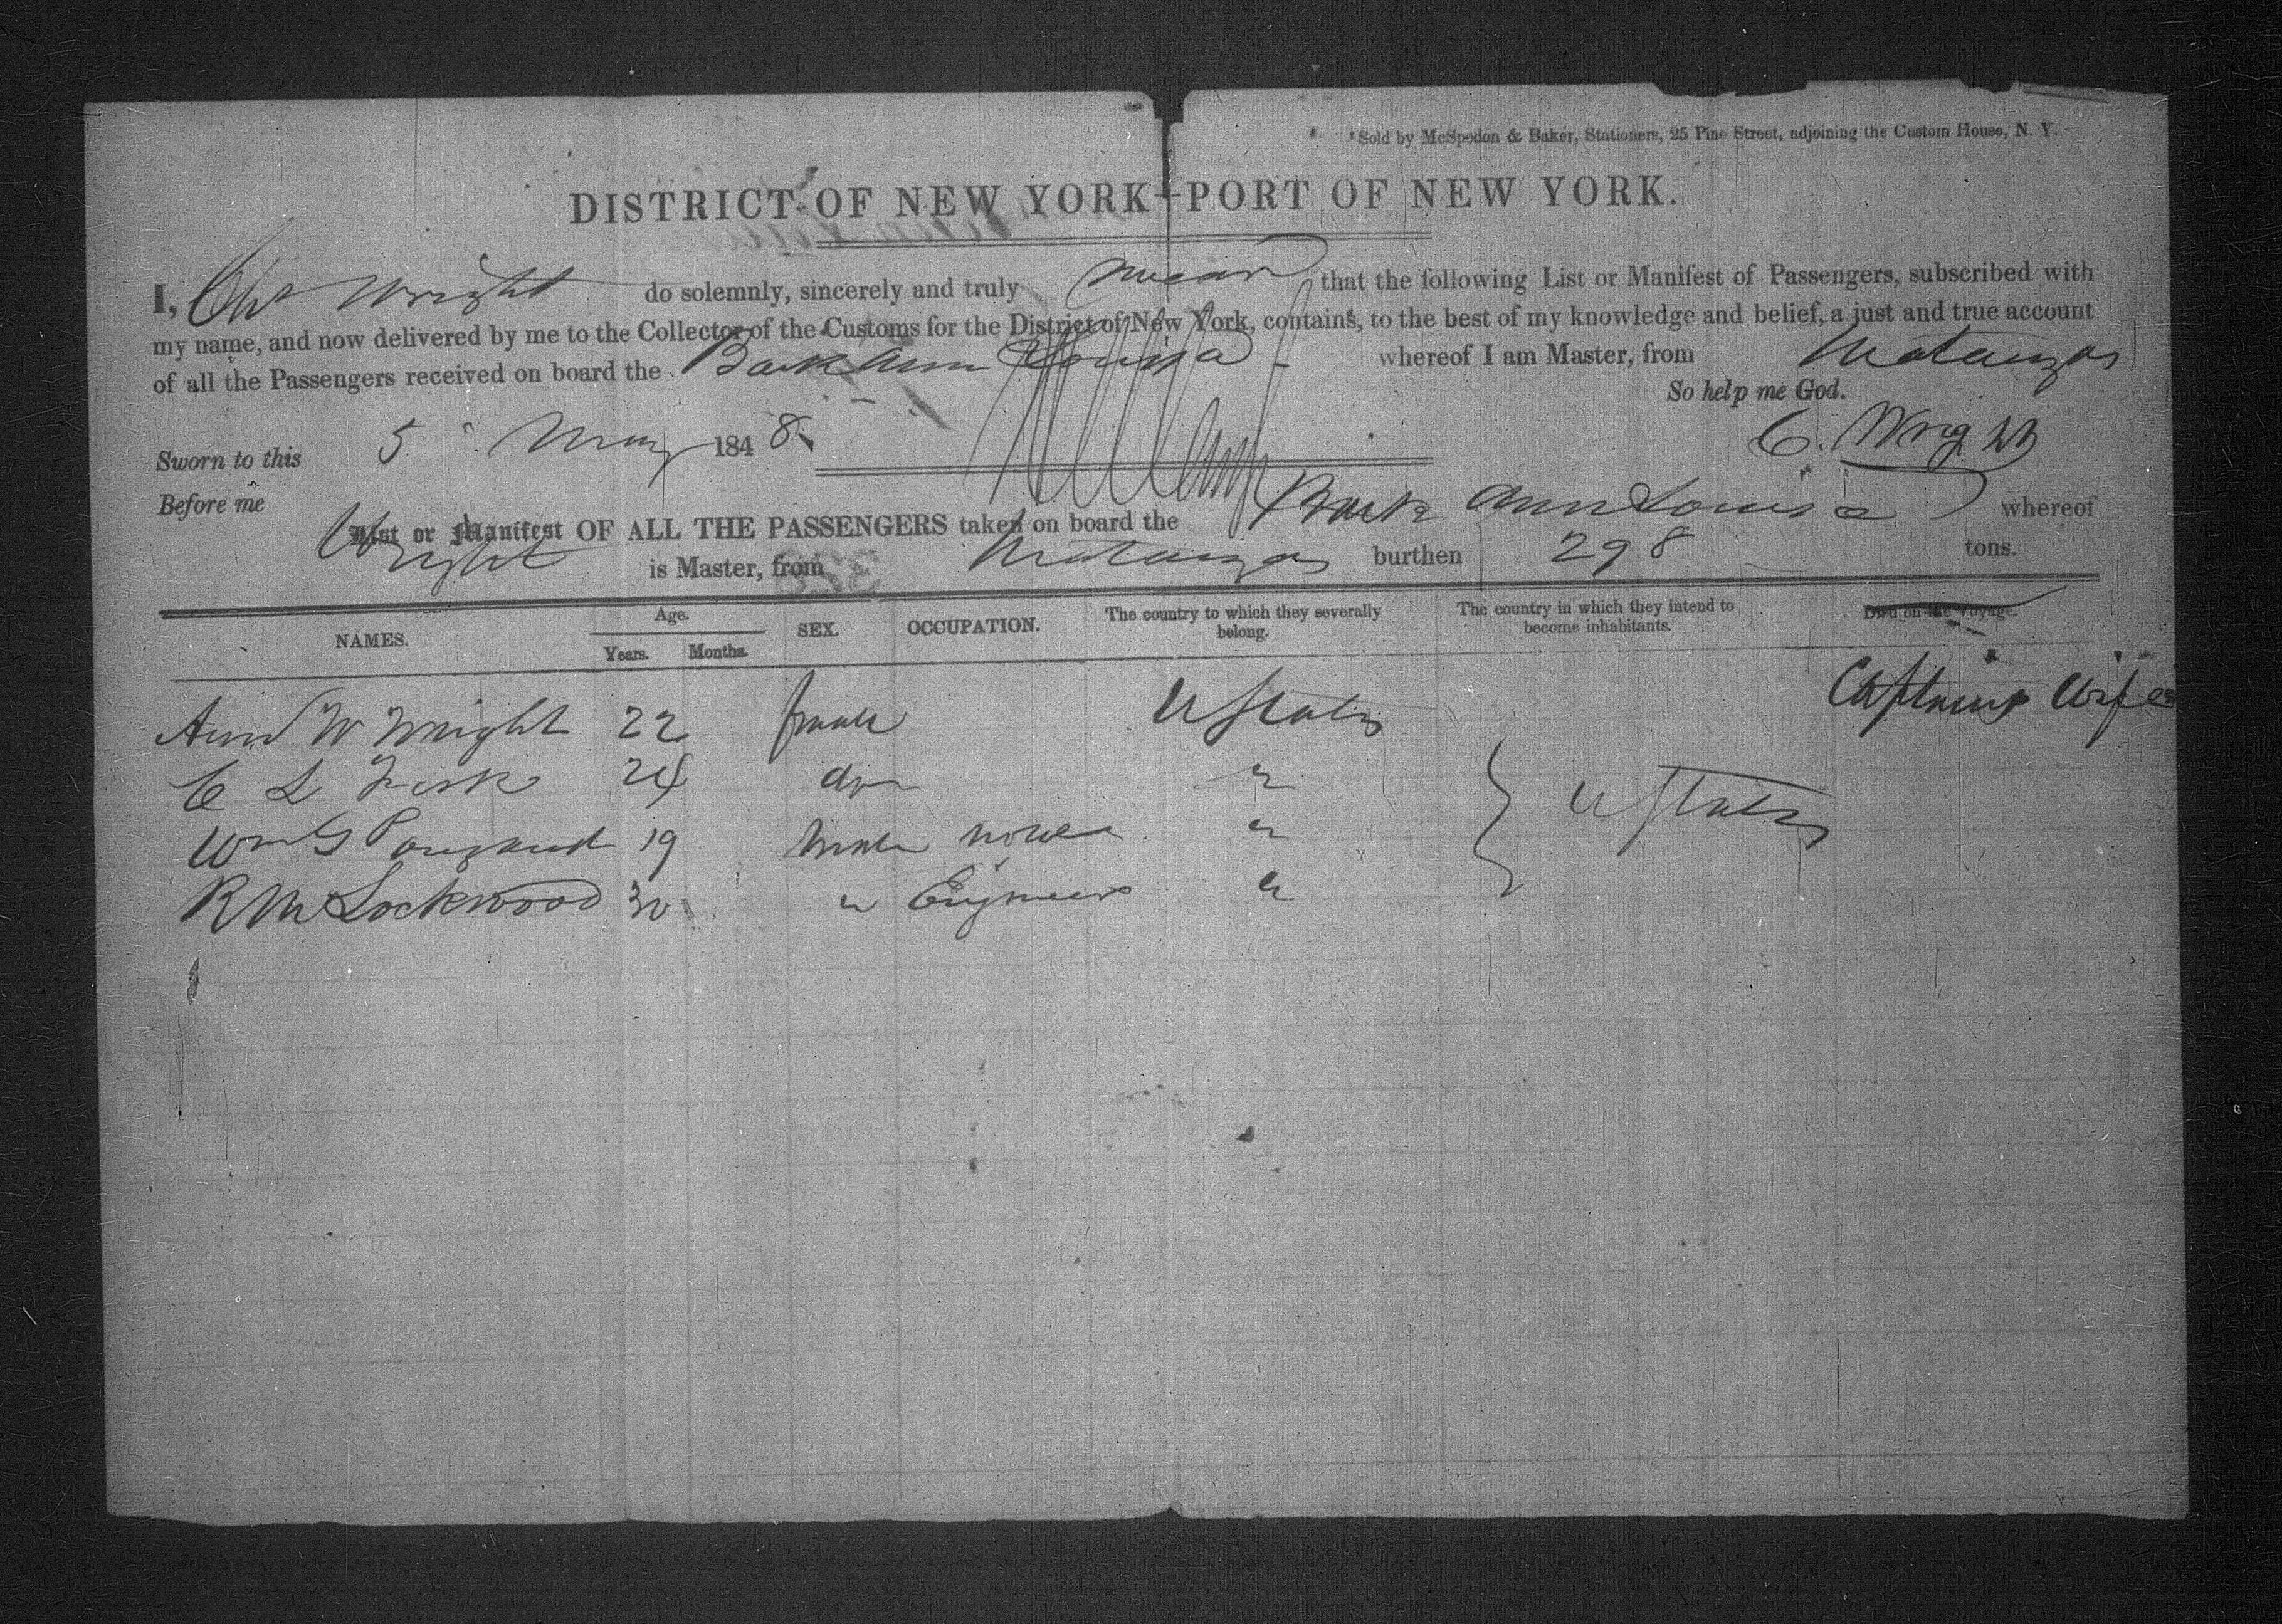 Sold by McSpedon & Baker, Stationers, 25 Pine Street, adjoining the Custom House, N. Y.
DISTRICT OF NEW YORK—PORT OF NEW YORK.
I, Wright do solemnly, sincerely and truly swear that the following List or Manifest of Passengers, subscribed with
my name, and now delivered by me to the Collector of the Customs for the District of New York, contains, to the best of my knowledge and belief, a just and true account
of all the Passengers received on board the Bark Ann Louisa whereof I am Master, from Matanzas
So help me God.
Sworn to this 5 May 1848 C. Wright
Before me
List or Manifest OF ALL THE PASSENGERS taken on board the Bark Ann Louisa whereof
Wright is Master, from Matanzas burthen 298 tons.
NAMES. Age. Years. Months. SEX. OCCUPATION. The country to which they severally belong. The country in which they intend to become inhabitants. Died on the voyage.
Ann W Wright 22 female U States Captains Wife
C L Fisk 24 do "
Wm G 19 male none " U States
R M Lockwood 30 " Engineer "